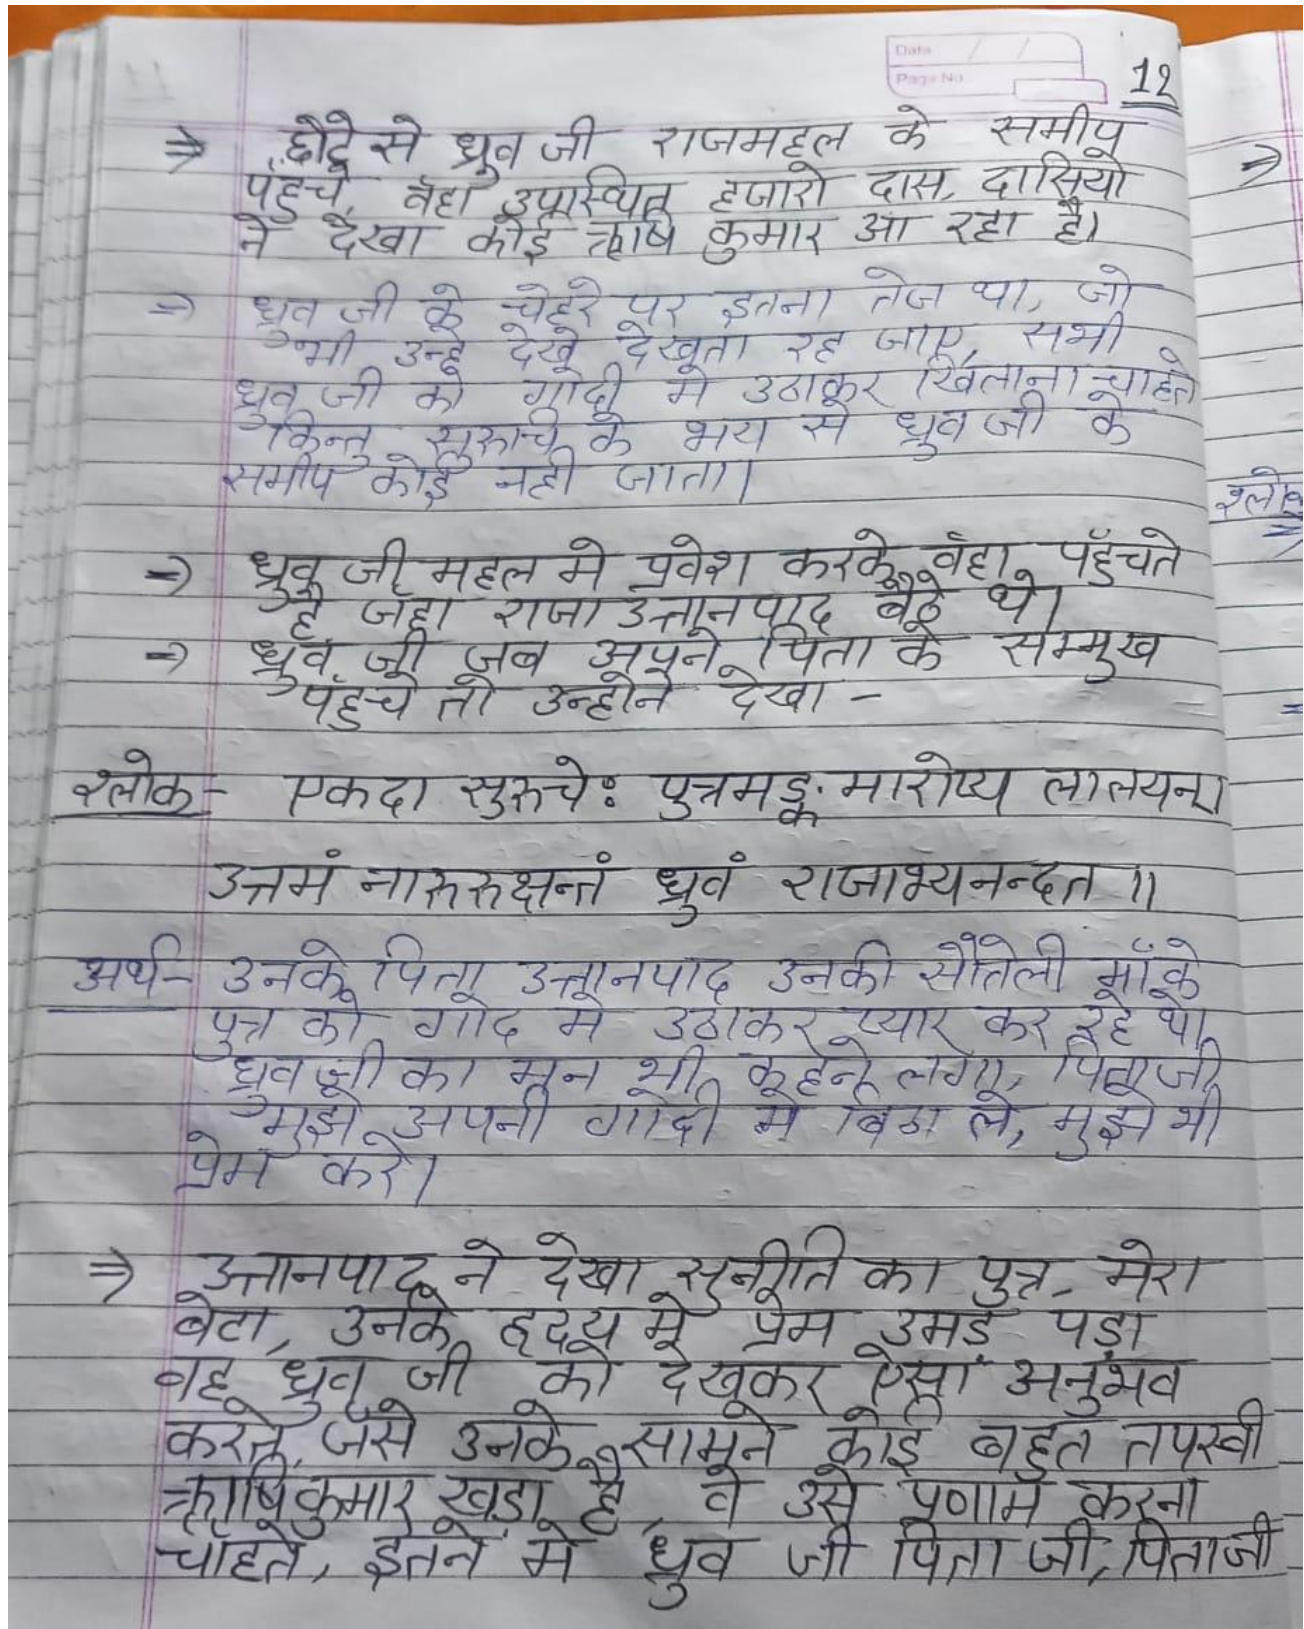 Date / /
Page No.
12
⇒ छोटे से ध्रुव जी राजमहल के समीप
पँहुचे, वँहा उपस्थित हजारो दास, दासियो
ने देखा कोई ऋषि कुमार आ रहा है।
⇒ ध्रुव जी के चेहरे पर इतना तेज था, जो
भी उन्हे देखे देखता रह जाए, सभी
ध्रुव जी को गोदी मे उठाकर खिलाना चाहते
किन्तु सुरूचि के भय से ध्रुव जी के
समीप कोई नही जाता।
⇒ ध्रुव जी महल मे प्रवेश करके वँहा पहुँचते
है जँहा राजा उत्तानपाद बैठे थे।
⇒ ध्रुव जी जब अपने पिता के सम्मुख
पँहुचे तो उन्होने देखा -
श्लोक - एकदा सुरुचेः पुत्रमङ्क मारोप्य लालयन।
उत्तमं नारुरुक्षन्तं ध्रुवं राजाभ्यनन्दत ॥
अर्थ - उनके पिता उत्तानपाद उनकी सौतेली माँ के
पुत्र को गोद मे उठाकर प्यार कर रहे थे।
ध्रुव जी का मन भी कहने लगा, पिताजी
मुझे अपनी गोदी मे बिठा ले, मुझे भी
प्रेम करे।
⇒ उत्तानपाद ने देखा सुनीति का पुत्र, मेरा
बेटा, उनके हृदय मे प्रेम उमड पड़ा
वह ध्रुव जी को देखकर ऐसा अनुभव
करते, जैसे उनके सामने कोई बहुत तपस्वी
ऋषिकुमार खड़ा है, वे उसे प्रणाम करना
चाहते, इतने मे ध्रुव जी पिता जी, पिताजी
⇒
श्लोक
⇒